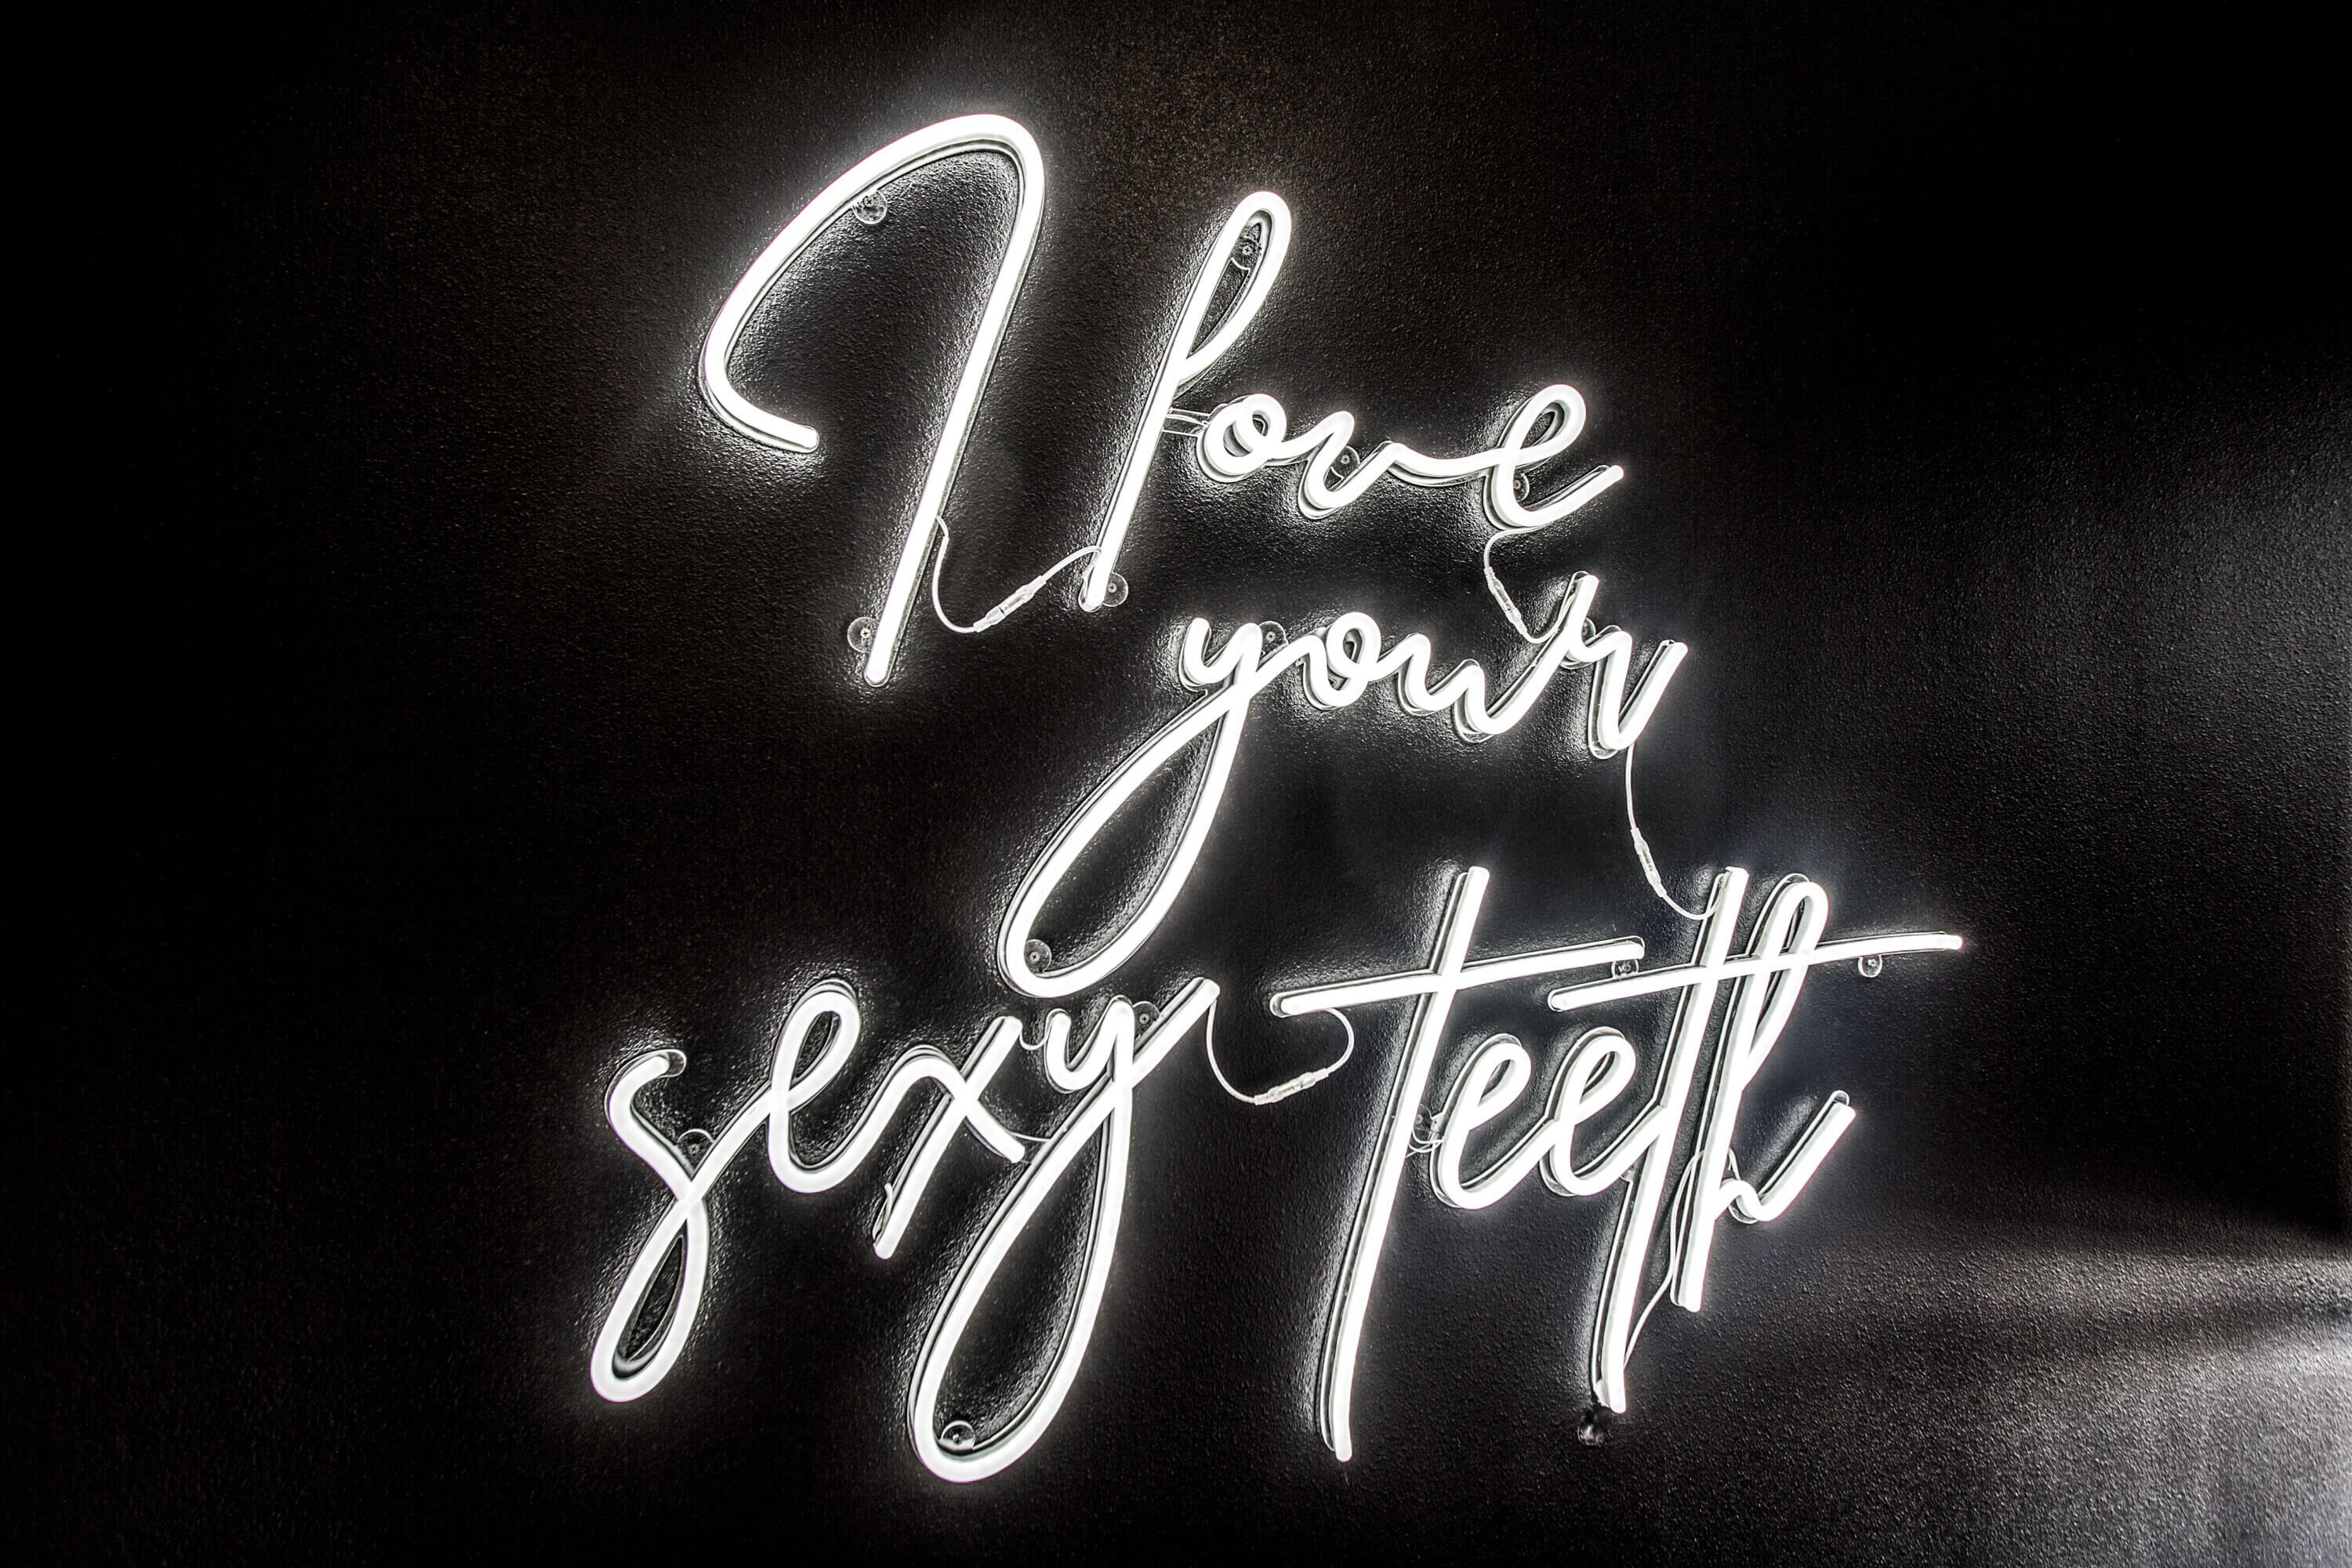 I love
your
sexy teeth